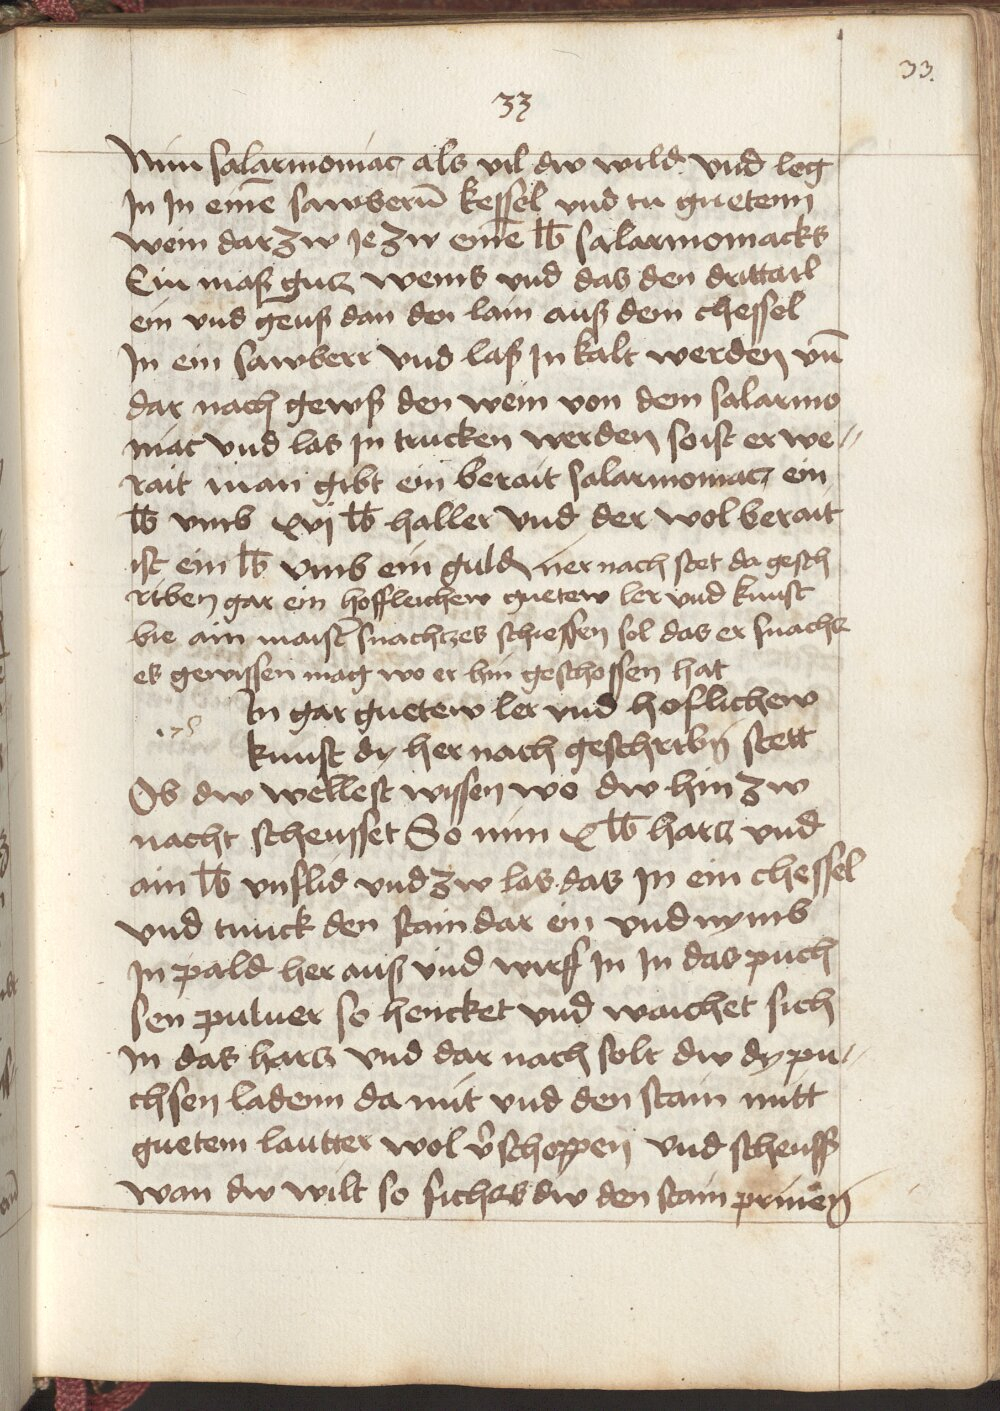 33.
33
Nim salarmoniac als vil dw wild vnd leg
In In einē sawberñ kessel vnd tu guetenn
wein darzw Je zw einē lb salarmoniacks
Ein mass gutz weins vnd das den drittail
ein vnd geuß dan den lain auß dem chessel
In ein sawberr vnd laß In kalt werden vn̄
dar nach gewß den wein von dem salarmo
niac vnd las In trucken werden so ist er we//
rait man gibt ein berait salarmoniac ein
lb vmb xvj lb haller vnd der wol berait
ist ein lb vmb ein guld ner nach stet da gesch
riben gar ein hoffleichew guetew ler vnd kunst
bie ain maist snachtzes schiessen sol das er snachtz
es gewissen mag wo er hin geschossen hat
.78
In gar guetew ler vnd hoflichew
kunst dy her nach geschribn̄ stett
Ob dw wellest wissen wo dw hin zw
nacht scheusset So nim x lb hartz vnd
ain lb vnslid vnd zw las das In ein chessel
vnd tunck den stain dar ein vnd nymb
In pald her auß vnd wirf In In das puch
sen puluer so hencket vnd waichet sich
In das hartz vnd dar nach solt dw dy pu//
chsen ladenn da mit vnd den stain mitt
guetem lautter wol v̄schoppen vnd scheuss
wan dw wilt so sichstw den stain prinēn